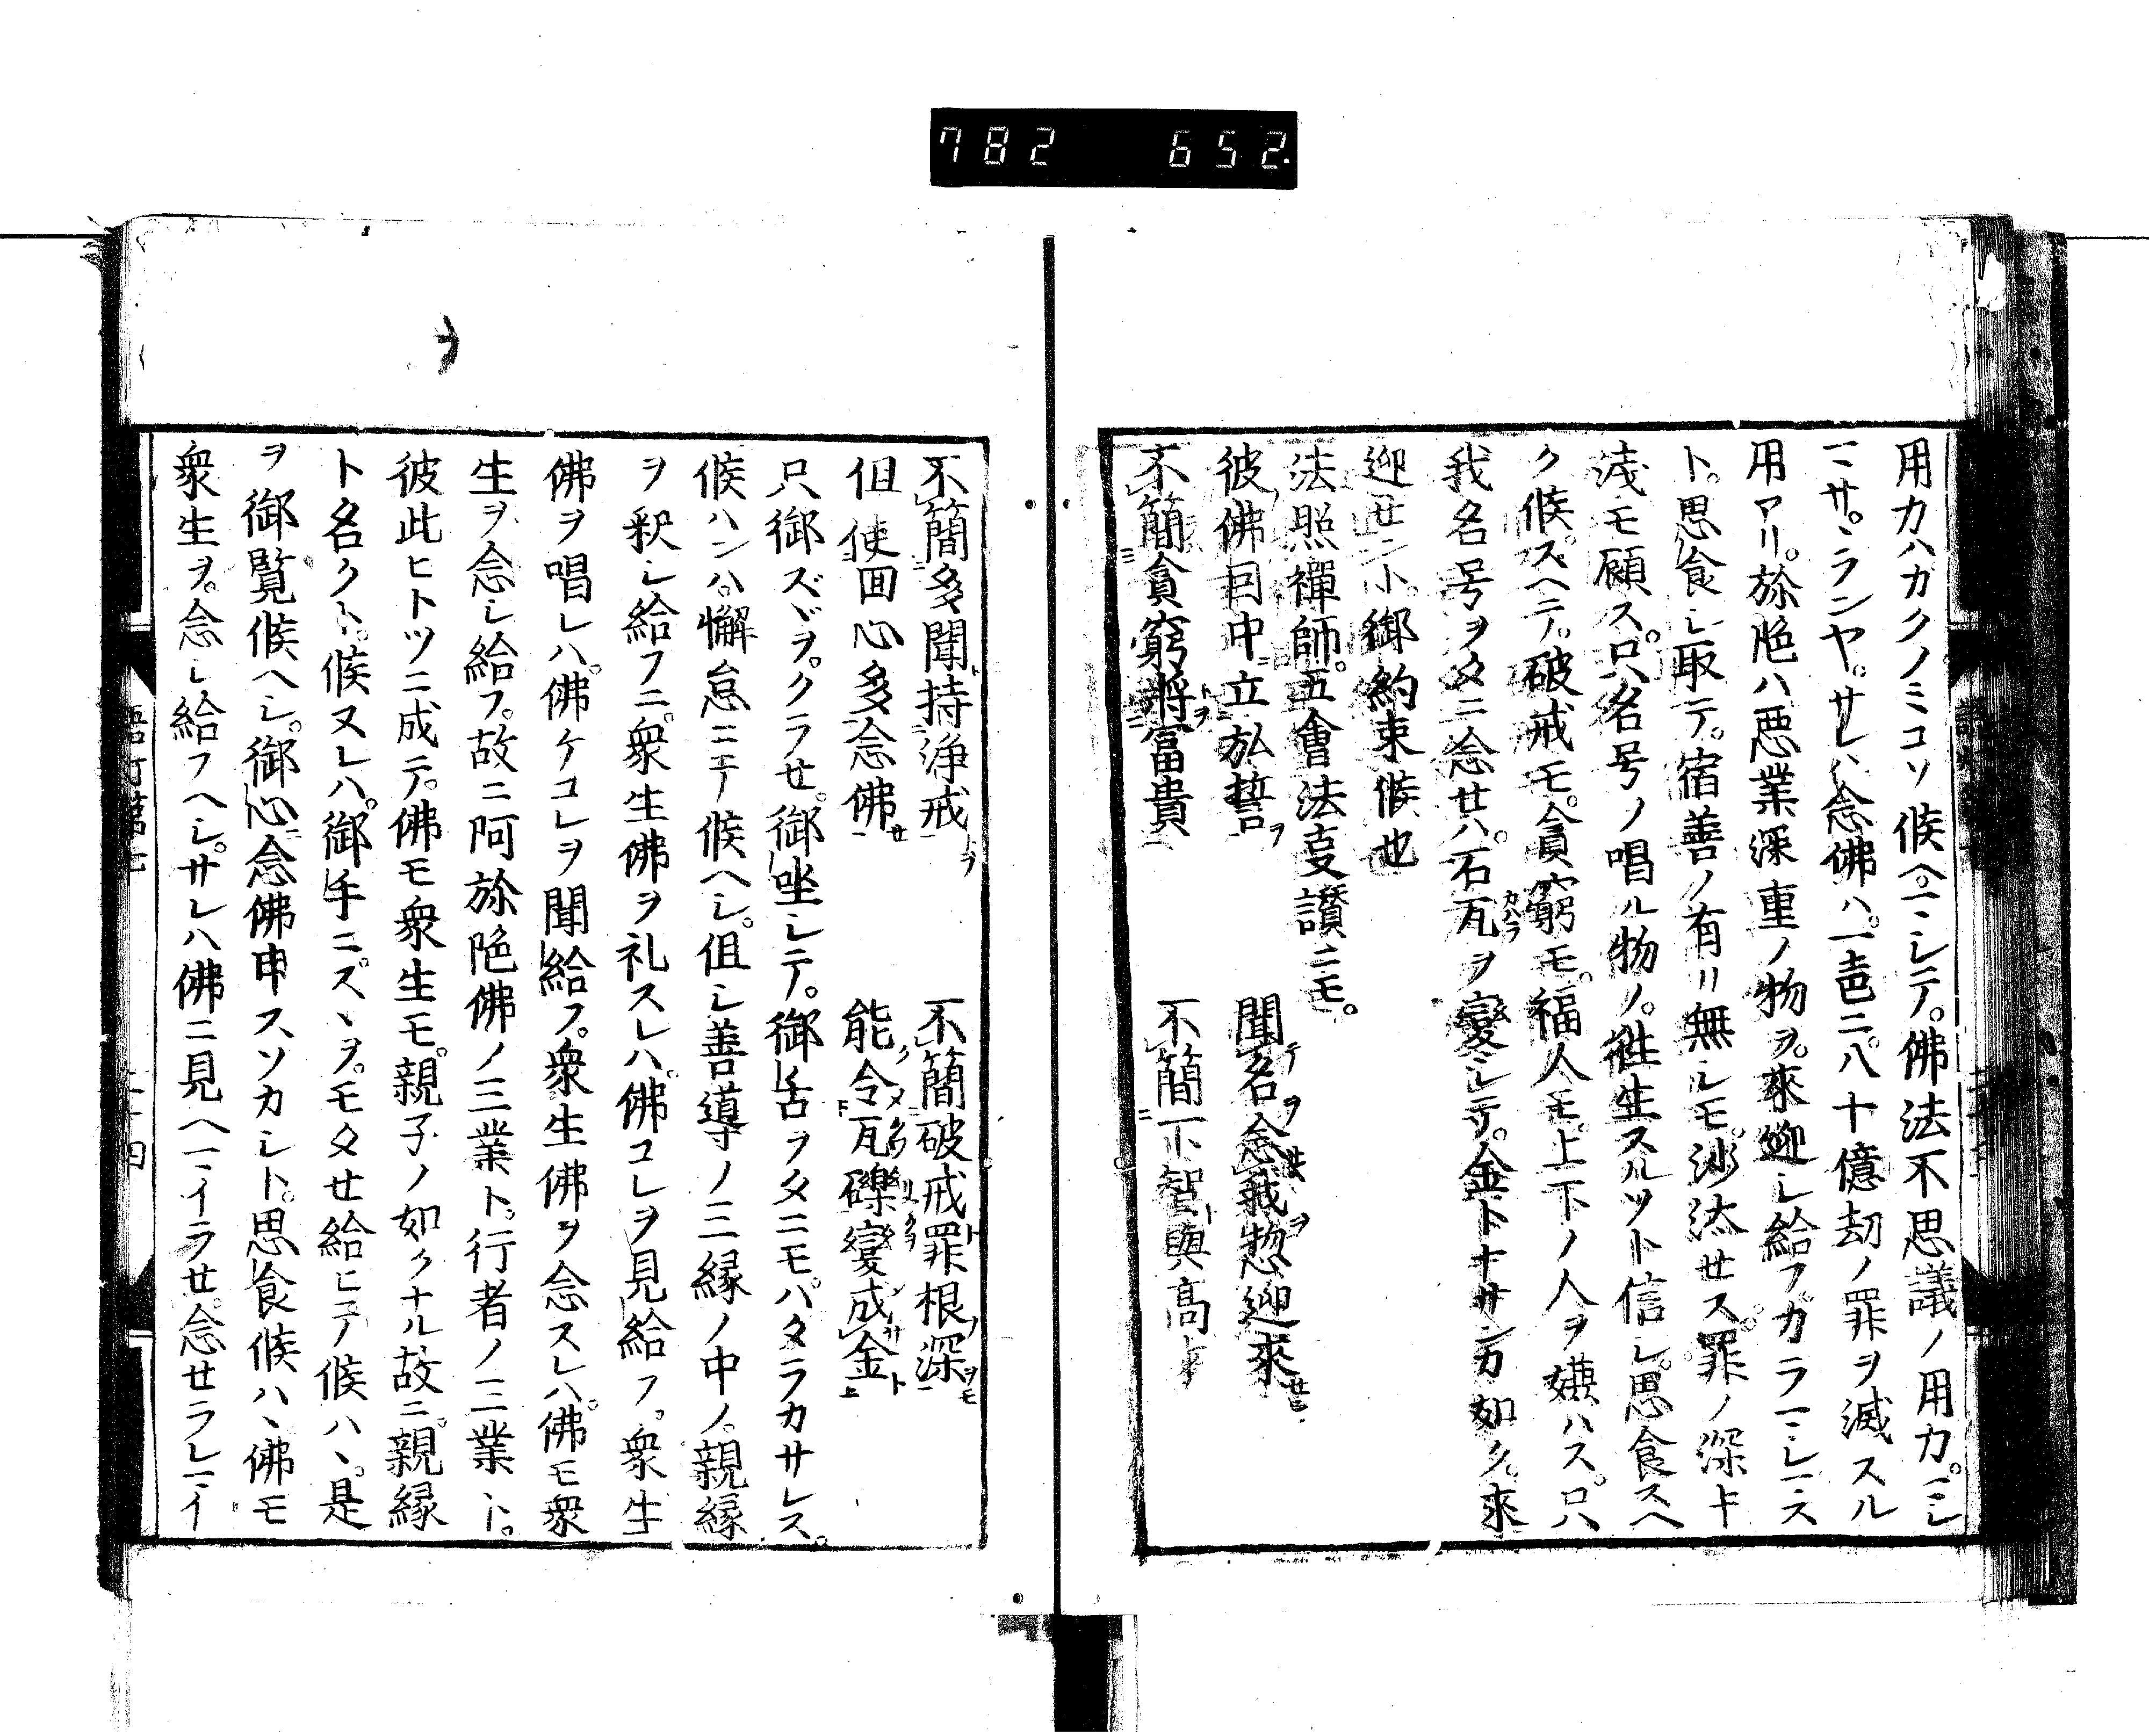 782 652
用力ハカクノミコソ候ヘ。マシテ。佛法不思議ノ用力。マシ
マサ。ランヤ。サレハ念佛ハ。一声ニ。八十億劫ノ罪ヲ滅スル
用アリ。弥陀ハ悪業深重ノ物ヲ。來迎シ給フカラマシマス
ト。思食シ取テ。宿善ノ有リ無シモ。沙汰セス。罪ノ深ト
浅モ顧ス。只名号ノ唱ル物ノ。往生スルソト信シ。思食スヘ
ク候。スヘテ。破戒モ。貧窮モ。福人モ。上下ノ人ヲ嫌ハス。只
我名号ヲタニ念せハ。石瓦ヲ變シテ。金トナサンカ如ク。來
迎せント。御約束候也
法照禪師。五會法事讃ニモ。
彼佛因中立弘誓 聞名念我惣迎來
不簡貧窮將富貴 不簡下智與高才
不簡多聞持浄戒 不簡破戒罪根深
但使回心多念佛 能令瓦礫變成金
只御ズヾヲ。クラせ。御坐シテ。御舌ヲタニモ。ハタラカサレス。
候ハンハ。懈怠ニテ候ヘシ。但シ善導ノ三縁ノ中ノ。親縁
ヲ釈シ給フニ。衆生佛ヲ礼スレハ。佛コレヲ見給フ。衆生
佛ヲ唱レハ。佛ケコレヲ聞給フ。衆生佛ヲ念スレハ。佛モ衆
生ヲ念シ給フ。故ニ阿弥陀佛ノ三業ト。行者ノ三業ト。
彼此ヒトツニ成テ。佛モ衆生モ。親子ノ如クナル故ニ。親縁
ト名クト。候ヌレハ。御手ニズヽヲ。モタせ給ヒテ候ハヽ。是
ヲ御覧候ヘシ。御心念佛申スソカシト。思食候ハヽ佛モ
衆生ヲ。念シ給フヘシ。サレハ佛ニ見ヘマイラせ。念せラレマイ